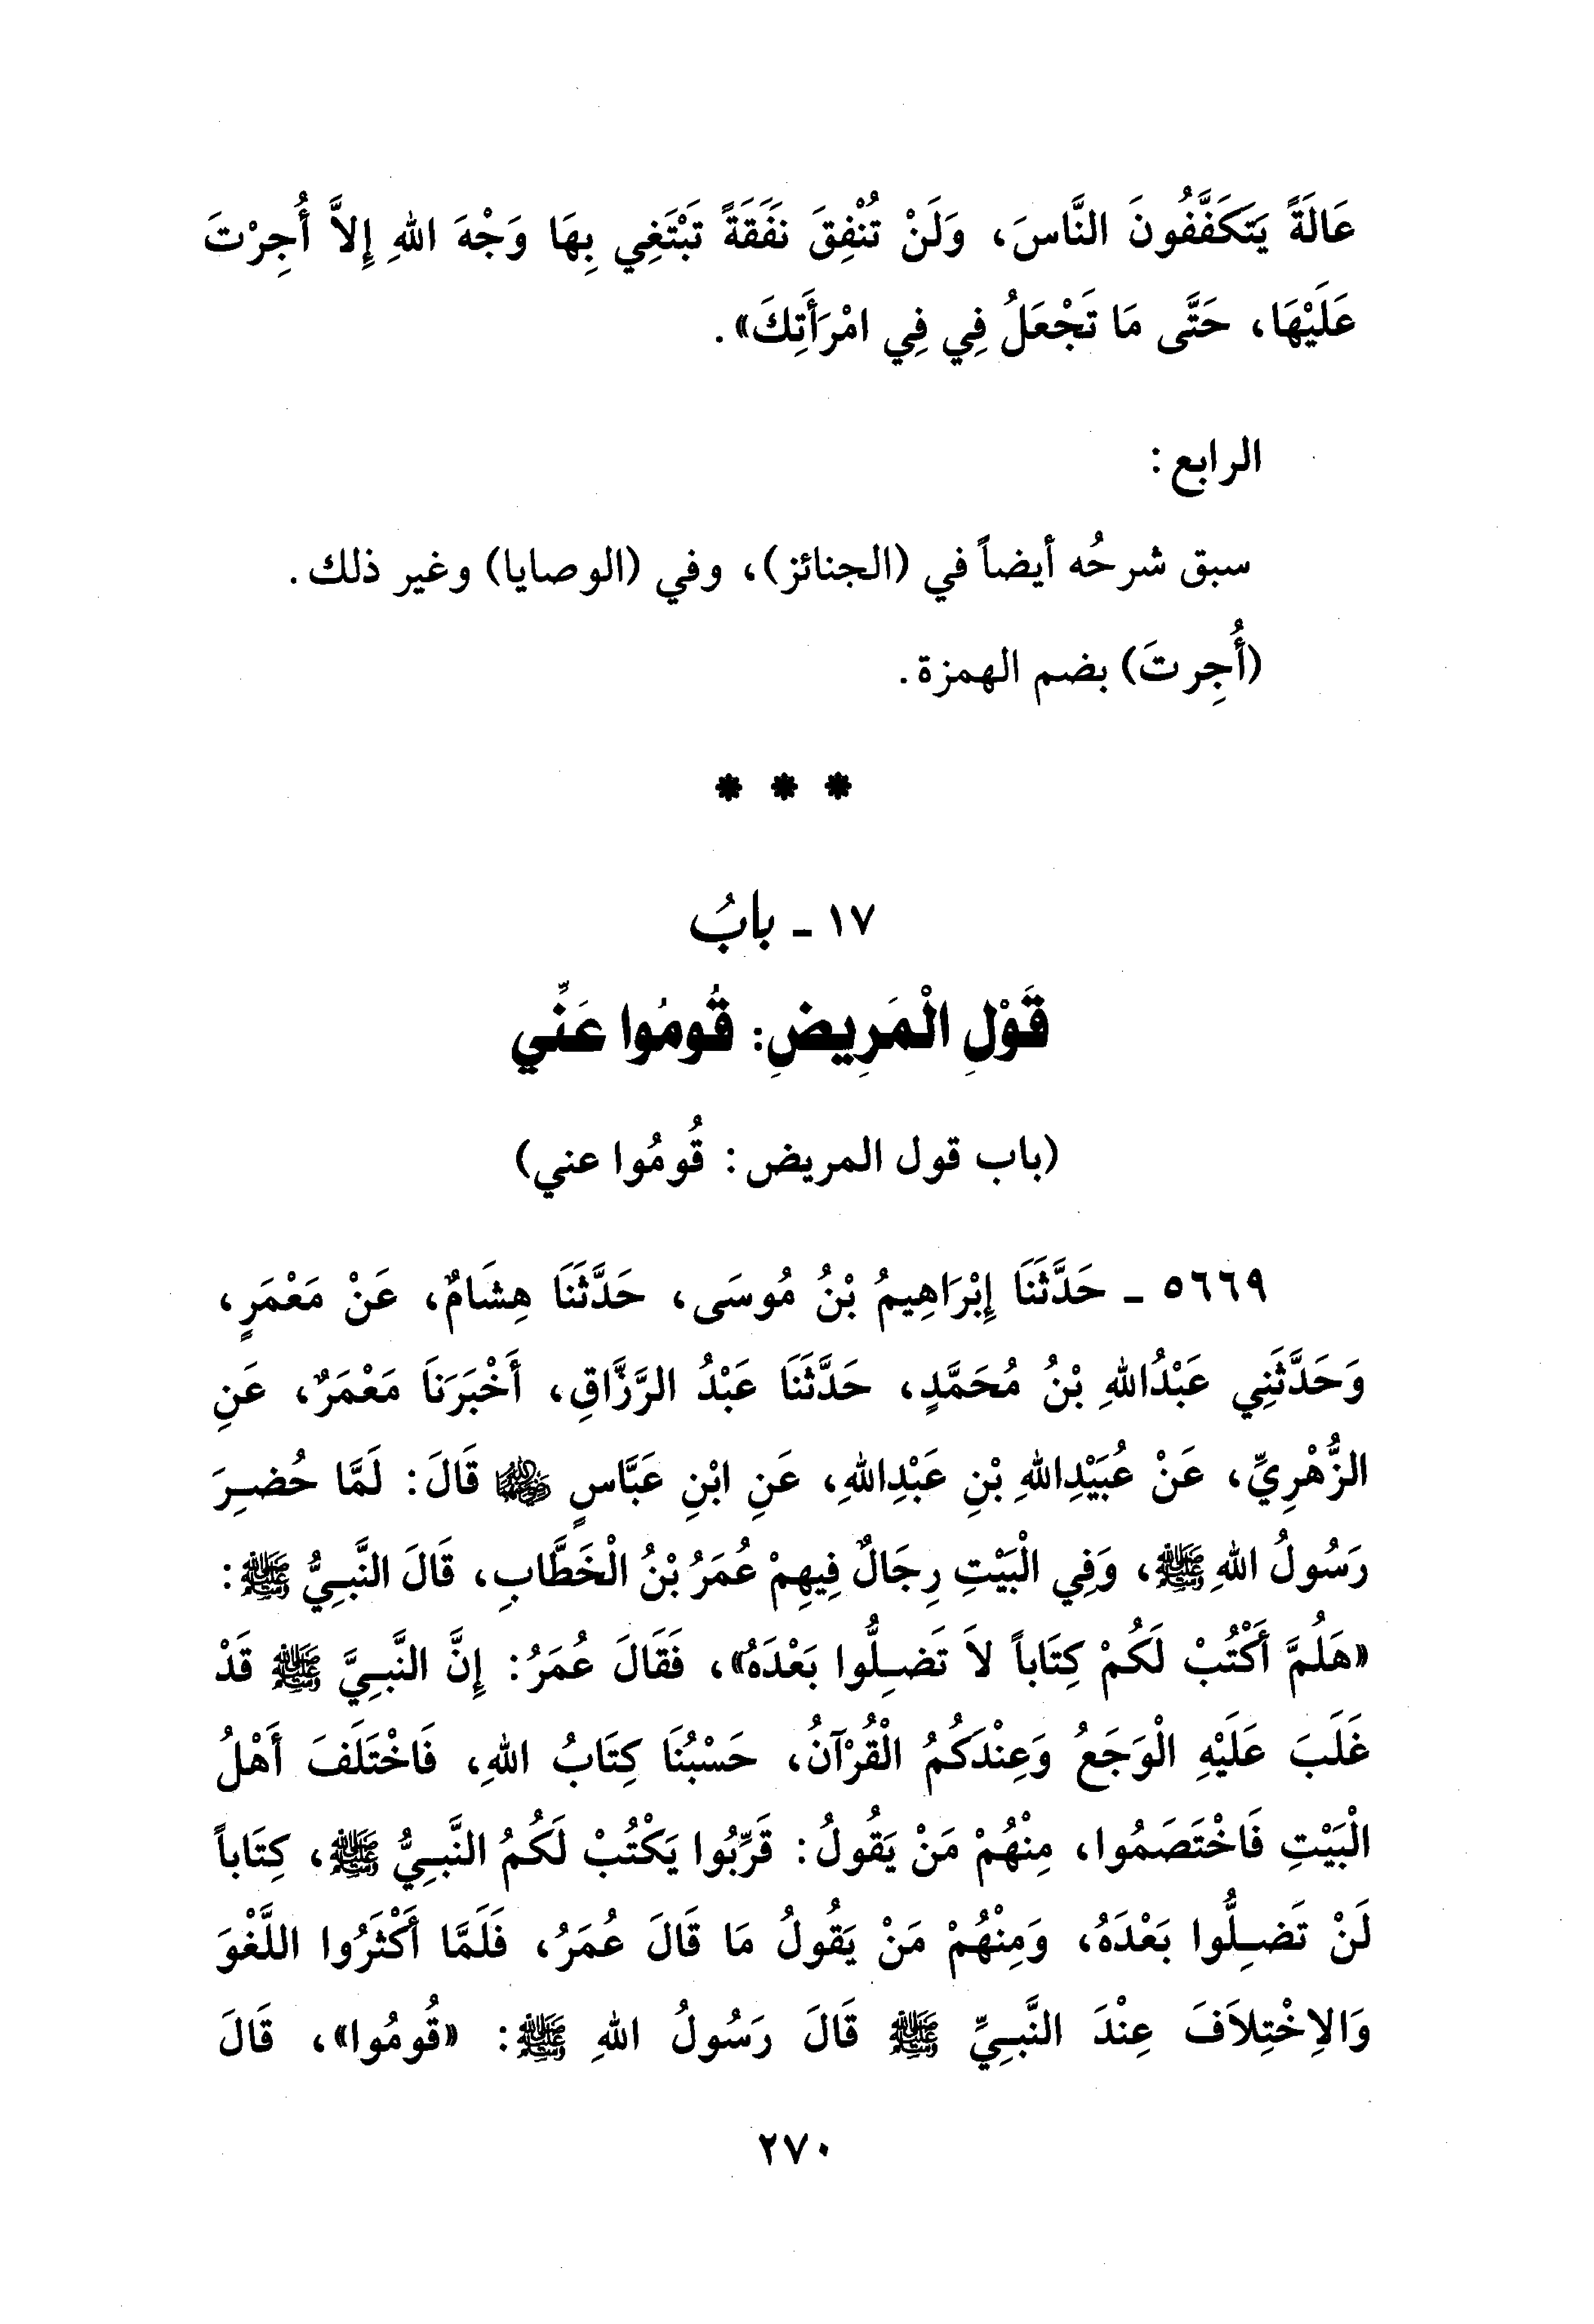 عَالَةً يَتَكَفَّفُونَ النَّاسَ، وَلَنْ تُنْفِقَ نَفَقَةً تَبْتَغِي بِهَا وَجْهَ اللهِ إِلاَّ أُجِرْتَ
عَلَيْهَا، حَتَّى مَا تَجْعَلُ فِي فِي امْرَأَتِكَ».
الرابع:
سبق شرحُه أيضاً في (الجنائز)، وفي (الوصايا) وغير ذلك.
(أُجِرتَ) بضم الهمزة.
* * *
١٧ ـ بابُ
قَوْلِ الْمَرِيضِ: قُومُوا عَنِّي
(باب قول المريض: قُومُوا عني)
٥٦٦٩ ـ حَدَّثَنَا إِبْرَاهِيمُ بْنُ مُوسَى، حَدَّثَنَا هِشَامٌ، عَنْ مَعْمَرٍ،
وَحَدَّثَنِي عَبْدُاللهِ بْنُ مُحَمَّدٍ، حَدَّثَنَا عَبْدُ الرَّزَّاقِ، أَخْبَرَنَا مَعْمَرٌ، عَنِ
الزُّهْرِيِّ، عَنْ عُبَيْدِاللهِ بْنِ عَبْدِاللهِ، عَنِ ابْنِ عَبَّاسٍ رضي الله عنهما قَالَ: لَمَّا حُضِرَ
رَسُولُ اللهِ ﷺ، وَفِي الْبَيْتِ رِجَالٌ فِيهِمْ عُمَرُ بْنُ الْخَطَّابِ، قَالَ النَّبِيُّ ﷺ:
«هَلُمَّ أَكْتُبْ لَكُمْ كِتَاباً لاَ تَضِلُّوا بَعْدَهُ»، فَقَالَ عُمَرُ: إِنَّ النَّبِيَّ ﷺ قَدْ
غَلَبَ عَلَيْهِ الْوَجَعُ وَعِنْدَكُمُ الْقُرْآنُ، حَسْبُنَا كِتَابُ اللهِ، فَاخْتَلَفَ أَهْلُ
الْبَيْتِ فَاخْتَصَمُوا، مِنْهُمْ مَنْ يَقُولُ: قَرِّبُوا يَكْتُبْ لَكُمُ النَّبِيُّ ﷺ، كِتَاباً
لَنْ تَضِلُّوا بَعْدَهُ، وَمِنْهُمْ مَنْ يَقُولُ مَا قَالَ عُمَرُ، فَلَمَّا أَكْثَرُوا اللَّغْوَ
وَالاِخْتِلاَفَ عِنْدَ النَّبِيِّ ﷺ قَالَ رَسُولُ اللهِ ﷺ: «قُومُوا»، قَالَ
٢٧٠